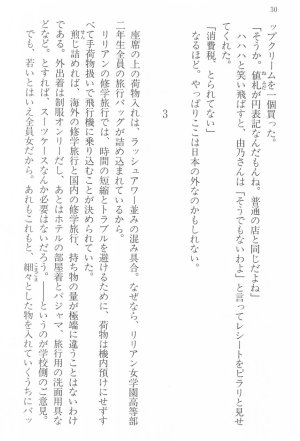 30
ップクリームを一個買った。
「そうか。値札が円表記なんだもんね。普通の店と同じだよね」
ハハハと笑い飛ばすと、由乃さんは「そうでもないわよ」と言ってレシートをピラリと見せ
てくれた。
「消費税、とられてない」
なるほど。やっぱりここは日本の外なのかもしれない。
3
座席の上の荷物入れは、ラッシュアワー並みの混み具合。なぜなら、リリアン女学園高等部
二年生全員の旅行バッグが詰め込まれているから。
リリアンの修学旅行では、時間の短縮とトラブルを避けるために、荷物は機内預けにせず す
べて手荷物扱いで飛行機に乗り込むことが決められていた。
煎じ詰めれば、海外の修学旅行と国内の修学旅行、持ち物の量が極端に違うことはないわけ
である。外出着は制服オンリーだし、あとはホテルの部屋着とパジャマ、旅行用の洗面用具な
ど。とすれば、スーツケースなんか必要はないだろう。――というのが学校側のご意見。
でも、若いとはいえ全員女だから。あれもこれもと、細々とした物を入れていくうちにバッ